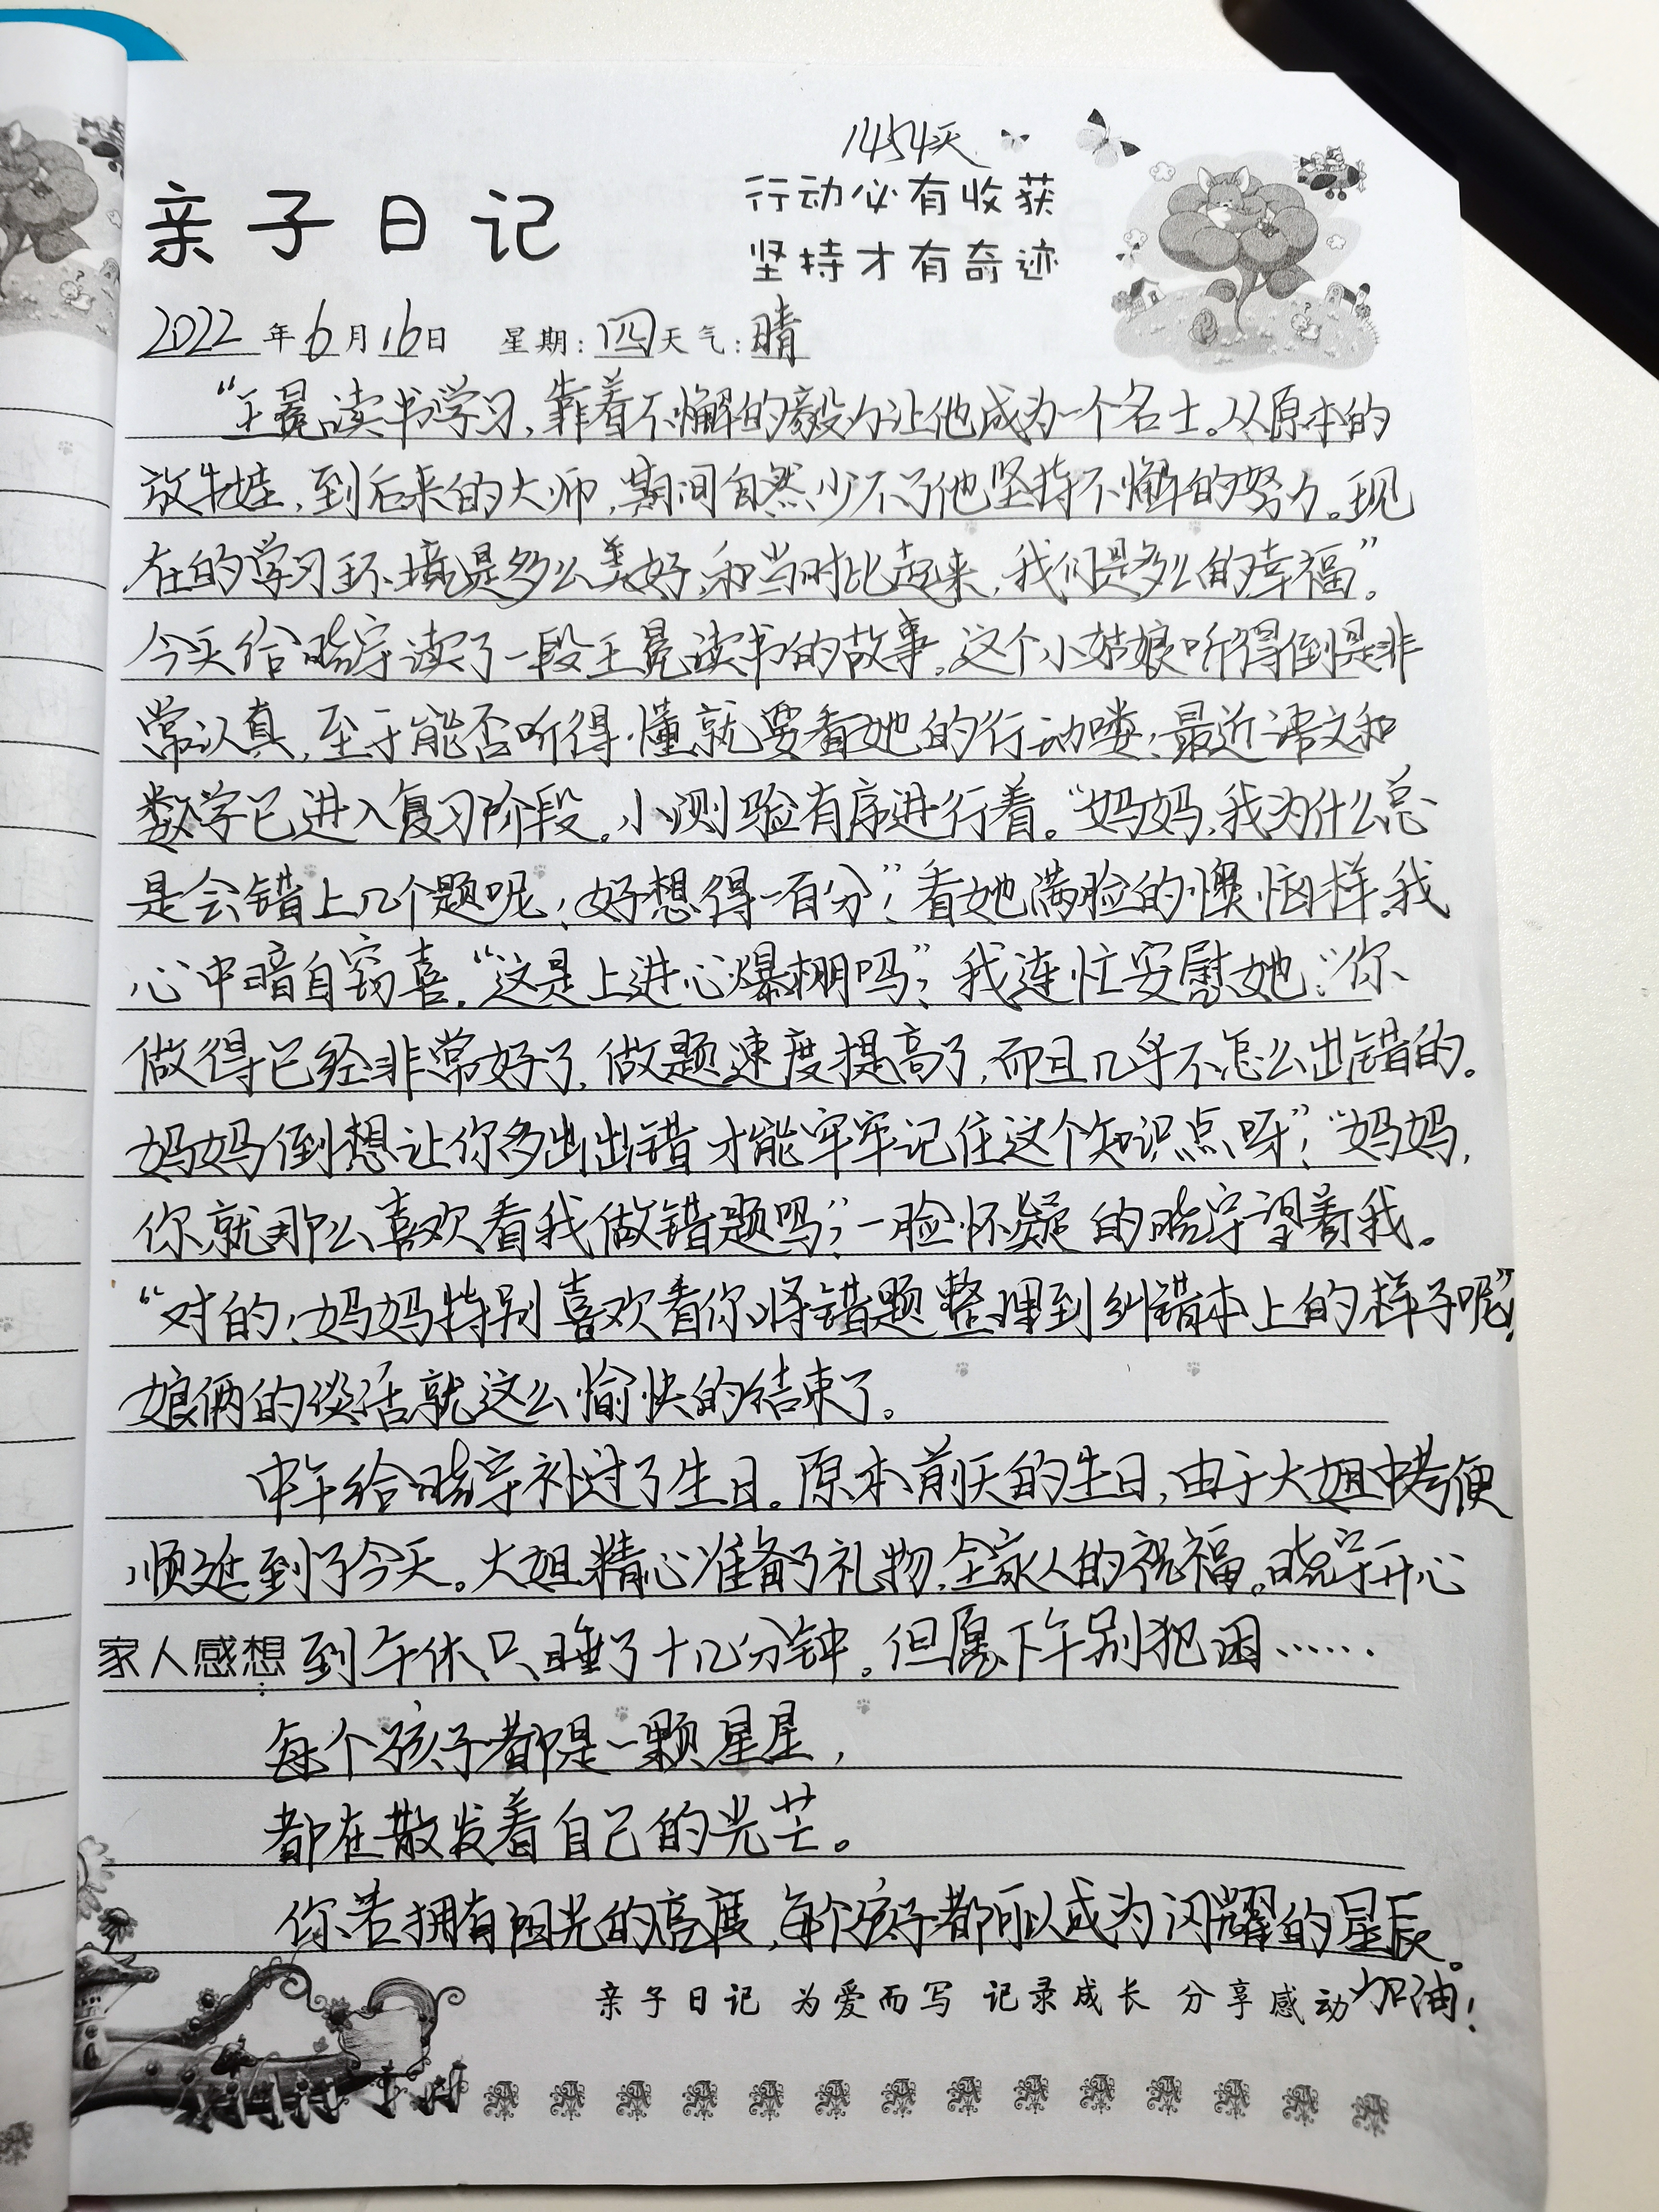 1454天
亲子日记
行动必有收获
坚持才有奇迹
2022年6月16日 星期:四天气:晴
“王冕读书学习,靠着不懈的毅力让他成为一个名士。从原本的
放牛娃,到后来的大师,期间自然少不了他坚持不懈的努力。现
在的学习环境是多么美好,和当时比起来,我们是多么的幸福”。
今天给晓宇读了一段王冕读书的故事。这个小姑娘听得倒是非
常认真,至于能否听得懂就要看她的行动喽!最近语文和
数学已进入复习阶段。小测验有序进行着。“妈妈,我为什么总
是会错上几个题呢,好想得一百分”!看她满脸的懊恼样。我
心中暗自窃喜。“这是上进心爆棚吗”?我连忙安慰她:“你
做得已经非常好了,做题速度提高了,而且几乎不怎么出错的。
妈妈倒想让你多出出错才能牢牢记住这个知识点呀”!“妈妈,
你就那么喜欢看我做错题吗”?一脸怀疑的晓宇望着我。
“对的,妈妈特别喜欢看你将错题整理到纠错本上的样子呢”!
娘俩的谈话就这么愉快的结束了。
中午给晓宇补过了生日。原本前天的生日,由于大姐中考便
顺延到了今天。大姐精心准备了礼物,全家人的祝福。晓宇开心
家人感想:到午休只睡了十几分钟。但愿下午别犯困……
每个孩子都是一颗星星,
都在散发着自己的光芒。
你若拥有阳光的亮度,每个孩子都可以成为闪耀的星辰。
亲子日记 为爱而写 记录成长 分享感动 加油!